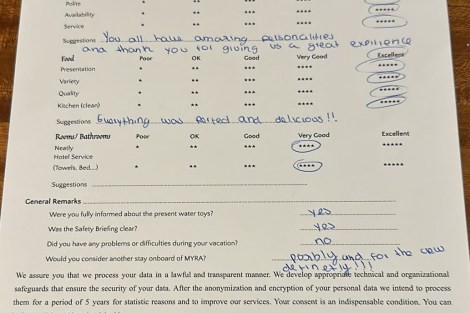 Polite * ** *** **** *****
Availability * ** *** **** *****
Service * ** *** **** *****
Suggestions You all have amazing personalities
and thank you for giving us a great expirience
Food Poor OK Good Very Good Excellent
Presentation * ** *** **** *****
Variety * ** *** **** *****
Quality * ** *** **** *****
Kitchen (clean) * ** *** **** *****
Suggestions Everything was perfect and delicious!!
Rooms/ Bathrooms Poor OK Good Very Good Excellent
Neatly * ** *** **** *****
Hotel Service
(Towels, Bed...) * ** *** **** *****
Suggestions
General Remarks
Were you fully informed about the present water toys? yes
Was the Safety Briefing clear? yes
Did you have any problems or difficulties during your vacation? no
Would you consider another stay onboard of MYRA? possibly and for the crew
definetly!!!
We assure you that we process your data in a lawful and transparent manner. We develop appropriate technical and organizational
safeguards that ensure the security of your data. After the anonymization and encryption of your personal data we intend to process
them for a period of 5 years for statistic reasons and to improve our services. Your consent is an indispensable condition. You can